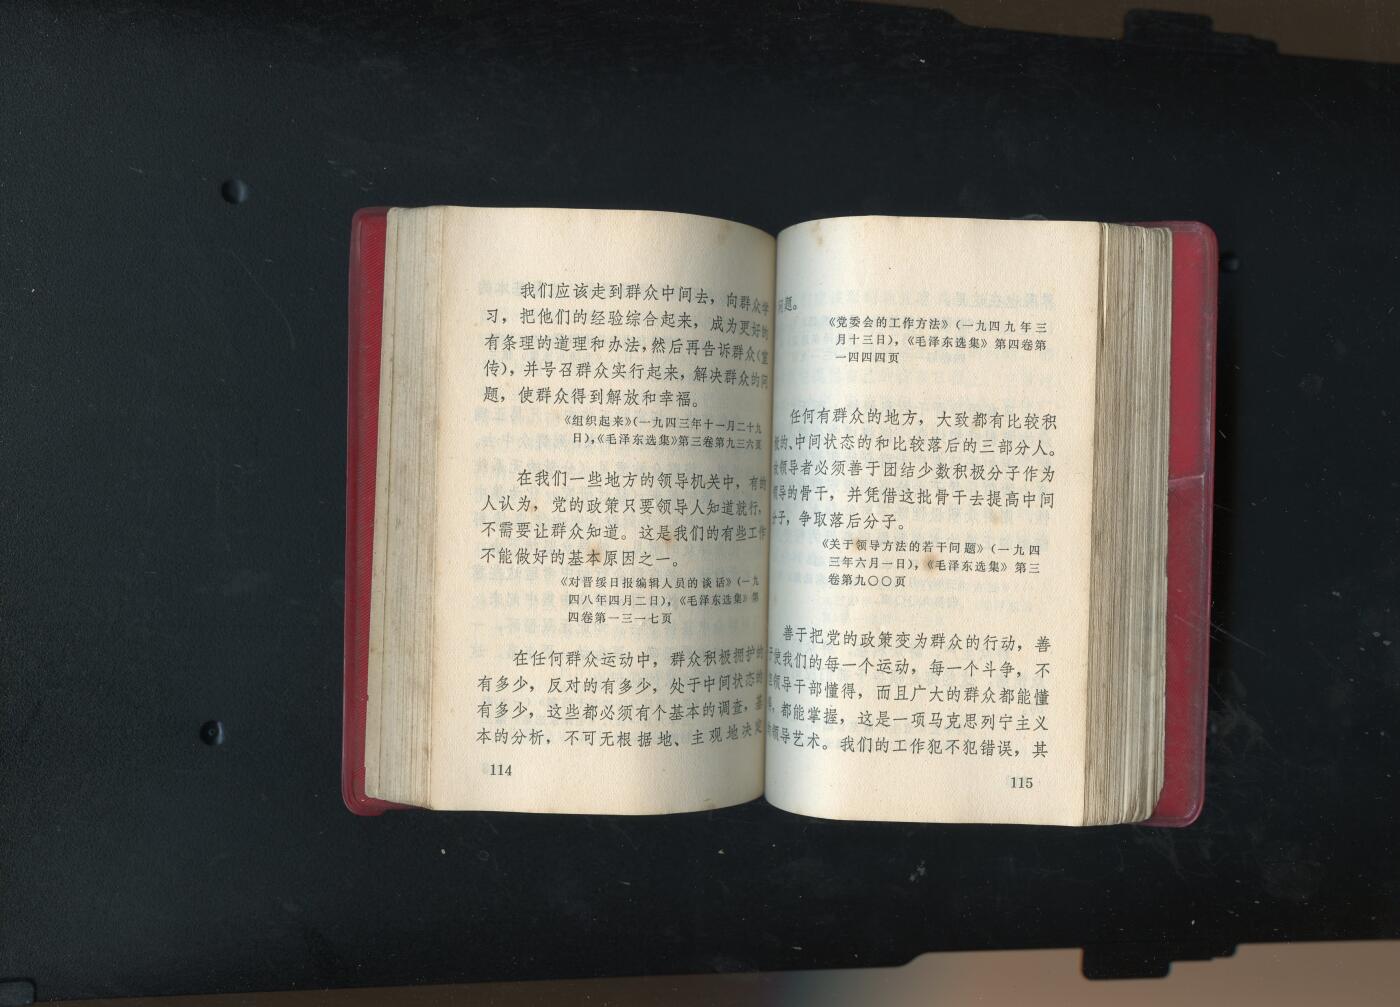 我们应该走到群众中间去，向群众学
习，把他们的经验综合起来，成为更好的
有条理的道理和办法，然后再告诉群众（宣
传），并号召群众实行起来，解决群众的问
题，使群众得到解放和幸福。
《组织起来》（一九四三年十一月二十九
日），《毛泽东选集》第三卷第九三六页
在我们一些地方的领导机关中，有的
人认为，党的政策只要领导人知道就行，
不需要让群众知道。这是我们的有些工作
不能做好的基本原因之一。
《对晋绥日报编辑人员的谈话》（一九
四八年四月二日），《毛泽东选集》第
四卷第一三一七页
在任何群众运动中，群众积极拥护的
有多少，反对的有多少，处于中间状态的
有多少，这些都必须有个基本的调查，基
本的分析，不可无根据地、主观地决定
114
问题。
《党委会的工作方法》（一九四九年三
月十三日），《毛泽东选集》第四卷第
一四四四页
任何有群众的地方，大致都有比较积
极的、中间状态的和比较落后的三部分人。
故领导者必须善于团结少数积极分子作为
领导的骨干，并凭借这批骨干去提高中间
分子，争取落后分子。
《关于领导方法的若干问题》（一九四
三年六月一日），《毛泽东选集》第三
卷第九〇〇页
善于把党的政策变为群众的行动，善
于使我们的每一个运动，每一个斗争，不
但领导干部懂得，而且广大的群众都能懂
得，都能掌握，这是一项马克思列宁主义
的领导艺术。我们的工作犯不犯错误，其
115